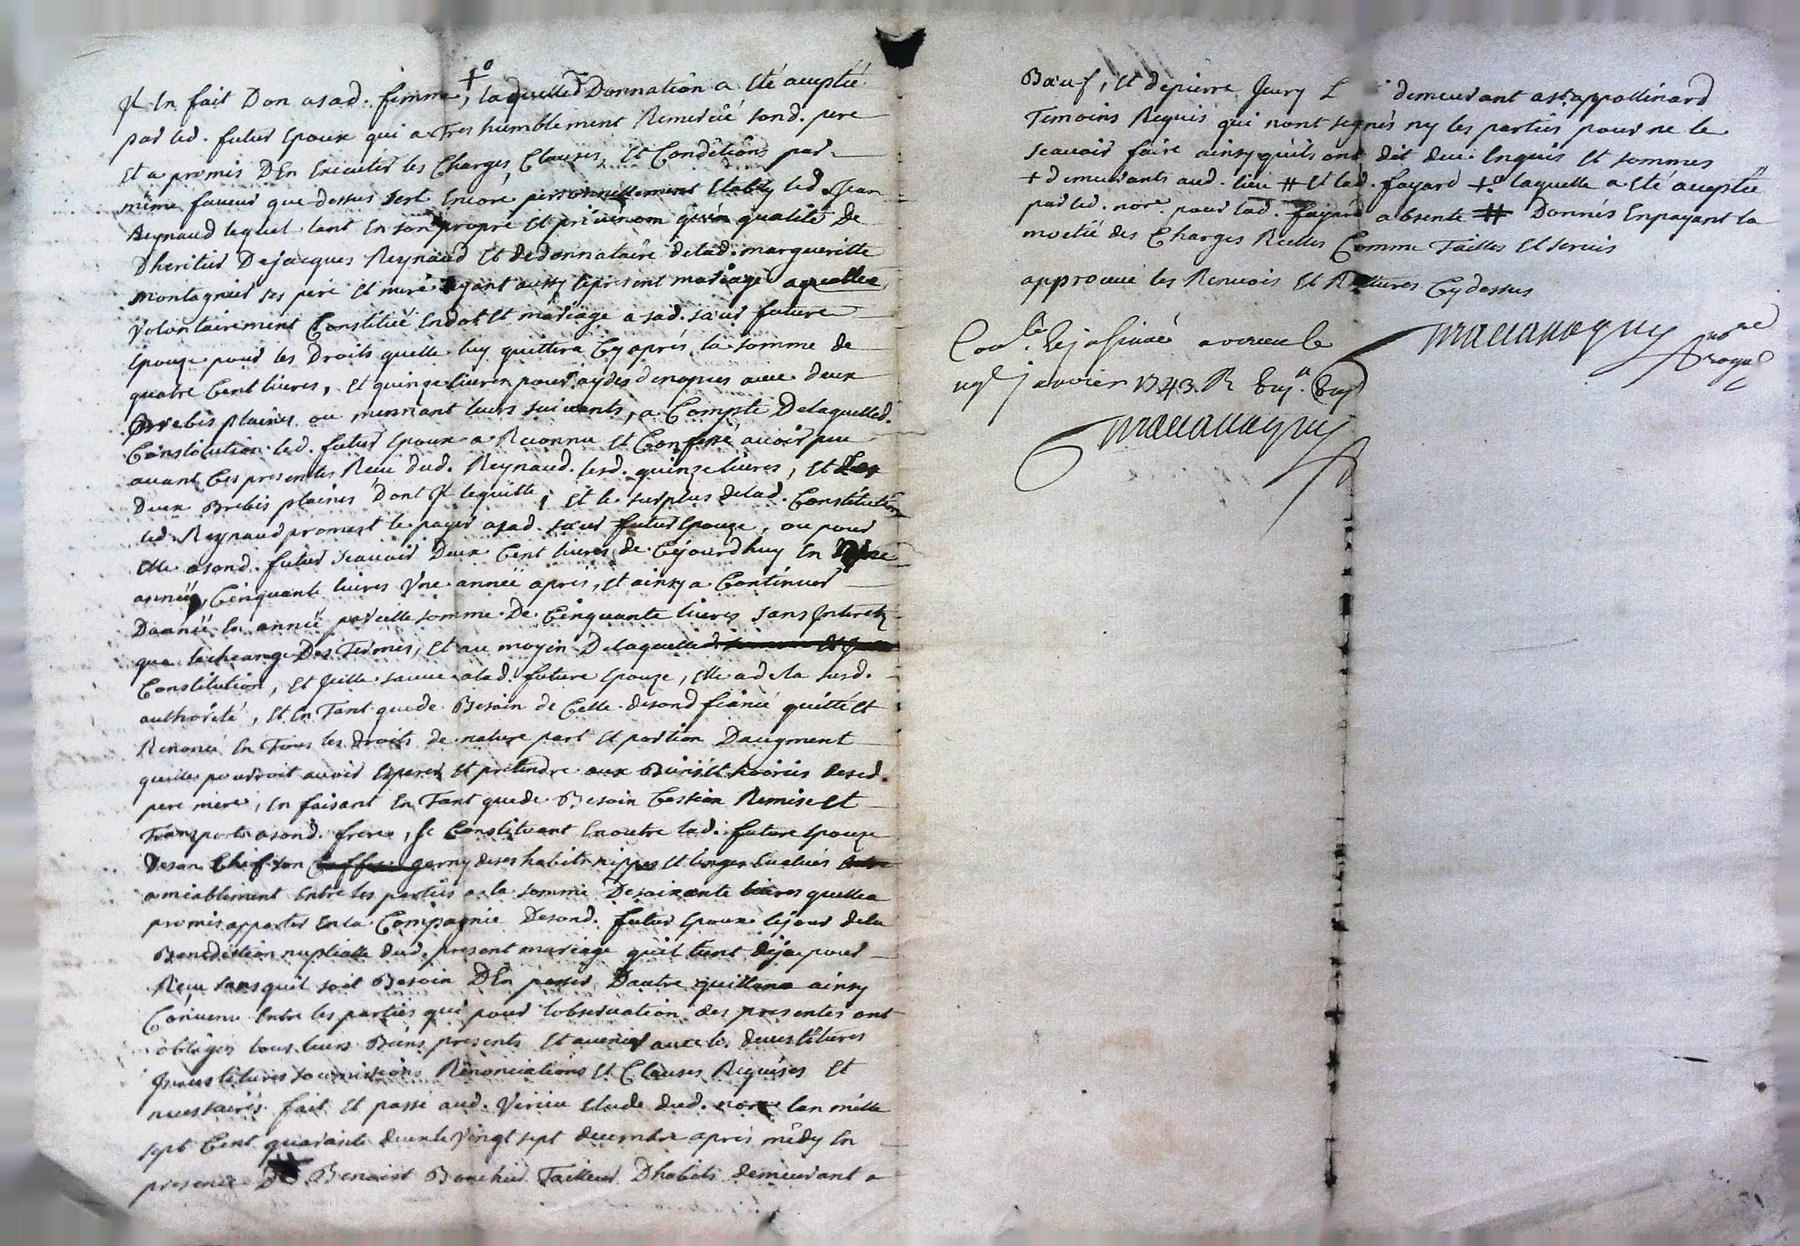 Il En fait Don asad. femme, +° laquelled Donnation a Eté acceptéé
par led. futur Epoux qui a Tres humblement Remercié sond. pere
Et a promis DEn Executer les Charges, Clauses, Et Conditions par
même faveur que dessus sest Encore personnellement Etably led. Jean
Reynaud lequel tant En son propre Et privé nom quèn qualité de
Dheritier Dejacques Reynaud Et de donnataire delad. margueritte
montagnier ses pere Et mere ayant aussy lepresent mariage agreable
volontairement Constitué Endot Et mariage a sad. sœur future
Epouze pour les Droits quelle luy quittera Cy aprés la somme de
quatre Cent livres, Et quinze livres pour aydes denopces avec deux
Brebis plaines ou mennant leurs suivants, a Compte Delaquelled.
Constitution led. futur Epoux a Reconnu Et Confessé avoir peu
avant Ces presentes Receu dud. Reynaud. lesd. quinze livres, Et Les
Deux Brebis plaines Dont Il lequitte, Et le surplus delad. Constitution
led. Reynaud promest le payer asad. sœur futur Epouze, ou pour
Elle asond. futur scavoir Deux Cent livres de Cejourdhuy En
année, Cinquante livres Vne année apres, Et ainsy a Continuer
Dannéé En annéé pareille somme De Cinquante livres sans Interets
que lecheange Des Termes, Et au moyen Delaquelled
Constitution, Et Icelle sauve alad. future Epouze, Elle a de la susd.
authorité, Et En Tant que de Besoin de Celle desond fiancé quitté Et
Renoncé En Tous les droits de nature part Et portion Daugment
quelles pourroit avoir Esperer Et pretendre aux Biens Et hoiries desesd.
pere mere, En faisant En Tant que de Besoin Cession Remise Et
Transporte asond. frere, Se Constituant Enoutre lad. future Epouze
De son Chef son garny deses habits nippes Et linges Evalués
amiablement Entre les parties a la somme De soixante livres quelle a
promis apporter En la Compagnie Desond. futur Epoux le jour dela
Benediction nuptialle dud. present mariage quil tient deja pour
Receu sans quil soit Besoin DEn passer Dautre quittance ainsy
Convenu Entre les parties qui pour lobservation des presentes ont
obliges tous leurs Biens presents Et avenir avec les devestitures
Investitures soumissions Renonciations Et Clauses Requises Et
necessaires. fait Et passé aud. Virieu Etude dud. nore lan mille
sept Cent quarante deux le vingt sept decembre aprés mïdy En
presence De Benoist Bouchud Tailleur Dhabits demeurant a
Bœuf, Et depierre Jury demeurant a st. appollinard
Temoins Requis qui nont signés ny les parties pour ne le
scavoir faire ainsy quils ont dit deux Enquis Et sommes
+ demeurants aud. lieu # Et lad. fayard +° laquelle a Eté acceptéé
par led. nore. pour lad. fayard absente # Donnés Enpayant la
moetié des Charges Reelles Comme Tailles Et servis
approuvé les Renvois Et Ratures Cydessus
Conlé
janvier 1743. R
nore
royal